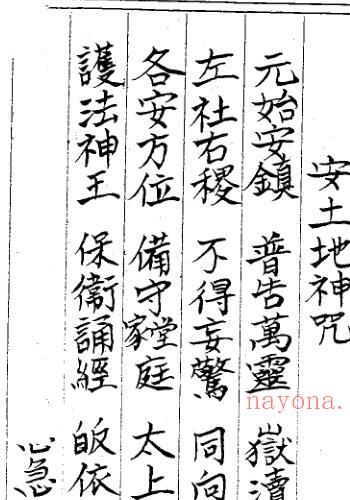 安土地神咒
元始安鎮 普告萬靈 嶽瀆
左社右稷 不得妄驚 同向
各安方位 備守家堂庭 太上
護法神王 保衛誦經 皈依
急
nayona.